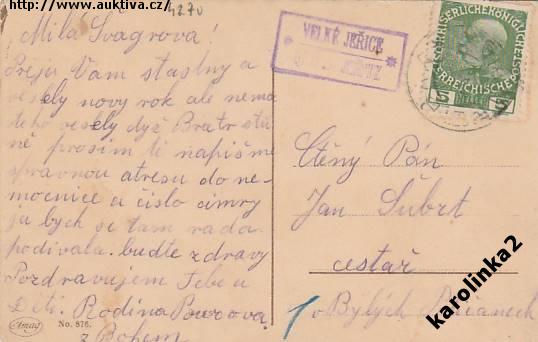 http://www.auktiva.cz/
4270
Milá Švagrova!
Preju Vam stastny a
vesely novy rok ale nema
teho vesely dyž Bratr stů
ně prosim ti napišme
spravnou atresu do ne-
mocnice a čislo cimry
ja bych se tam rada
podivala. buďte zdravy
Pozdravujem Tebe a
Děti. Rodina
z Bohem
Amag
No. 876.
VELKÉ JEŘICE
KAISERLICHE KÖNIGLICHE
ÖSTERREICHISCHE POST
5 HELLER 5
Ctěný Pán
Jan Šubrt
cestář
v Bylých
karolinka2